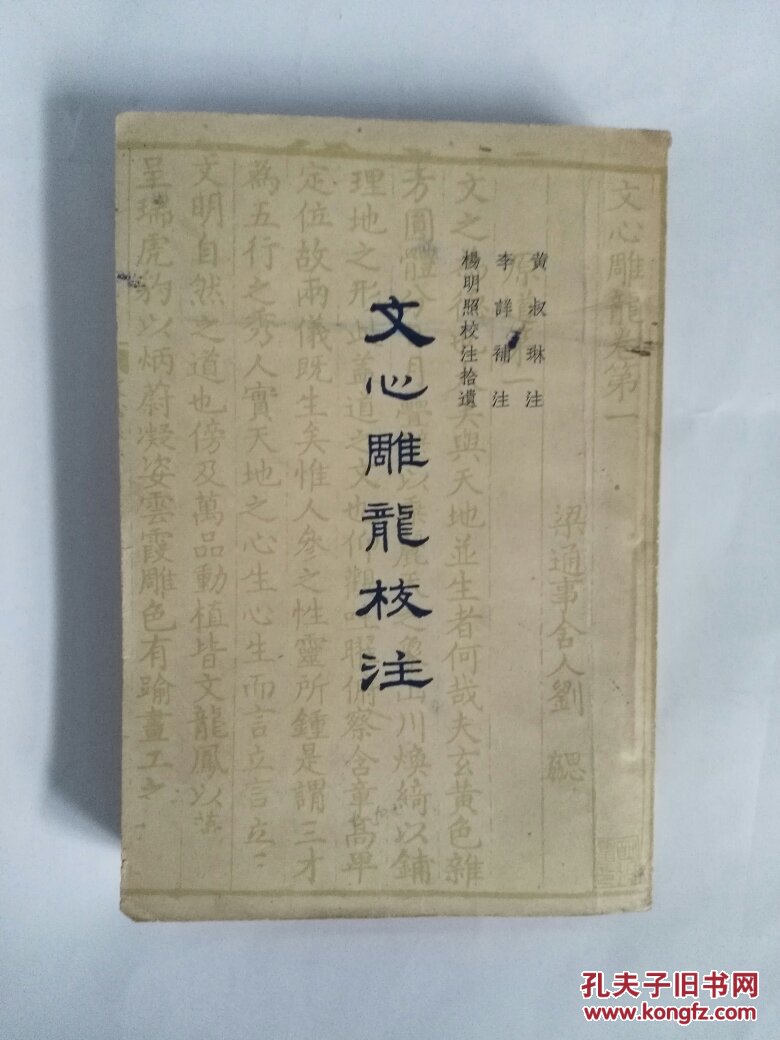 黃叔琳注
李詳補注
楊明照校注拾遺
文心雕龍校注
文心雕龍卷第一
梁通事舍人劉勰
原 一
文之 德 矣與天地並生者何哉夫玄黃色雜
方圓體 日 以 麗 之象山川煥綺以鋪
理地之形此蓋道之文也仰觀吐曜俯察含章高卑
定位故兩儀既生矣惟人參之性靈所鍾是謂三才
為五行之秀人實天地之心生心生而言立言立
文明自然之道也傍及萬品動植皆文龍鳳以藻
呈瑞虎豹以炳蔚凝姿雲霞雕色有踰畫工之
孔夫子旧书网
www.kongfz.com